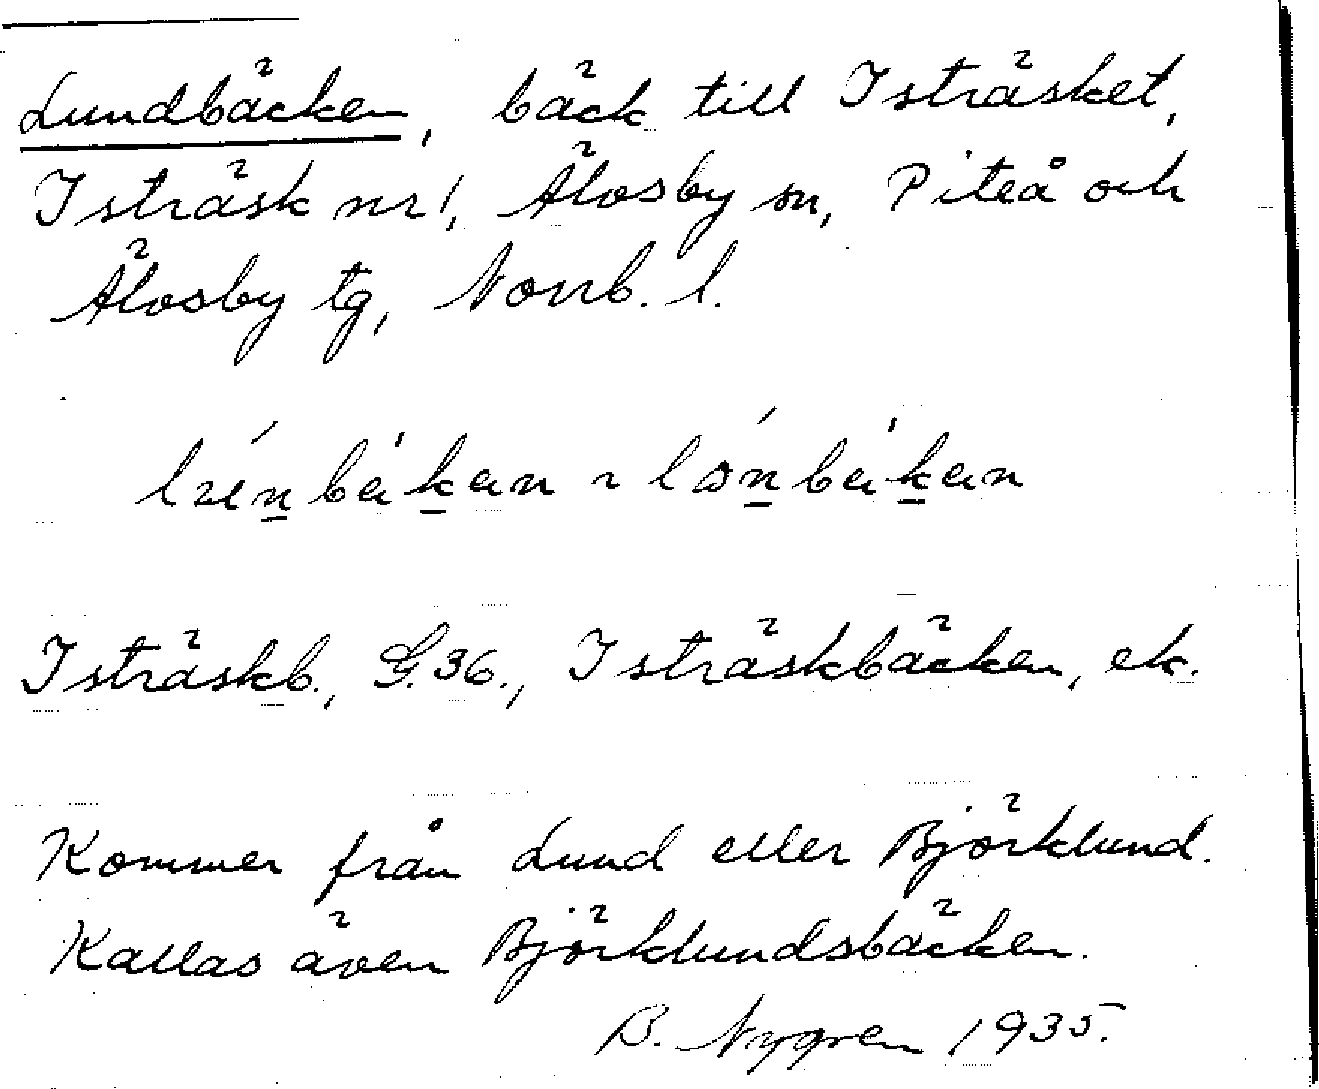 Lundbäcken, bäck till Isträsket,
Isträsk nr 1, Älvsby sn, Piteå och
Älvsby tg, Norrb. l.
Isträskb., G. 36., Isträskbäcken, ek.
Kommer från Lund eller Björklund.
Kallas även Björklundsbäcken.
B. Nygren 1935.